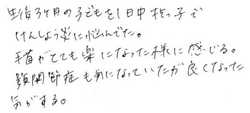 生后3ヶ月の子どもを1日中抱っ子で
けんしょう炎に悩んでた。
手首がとても楽になった様に感じる。
顎関節症も気になっていたが良くなった
気がする。